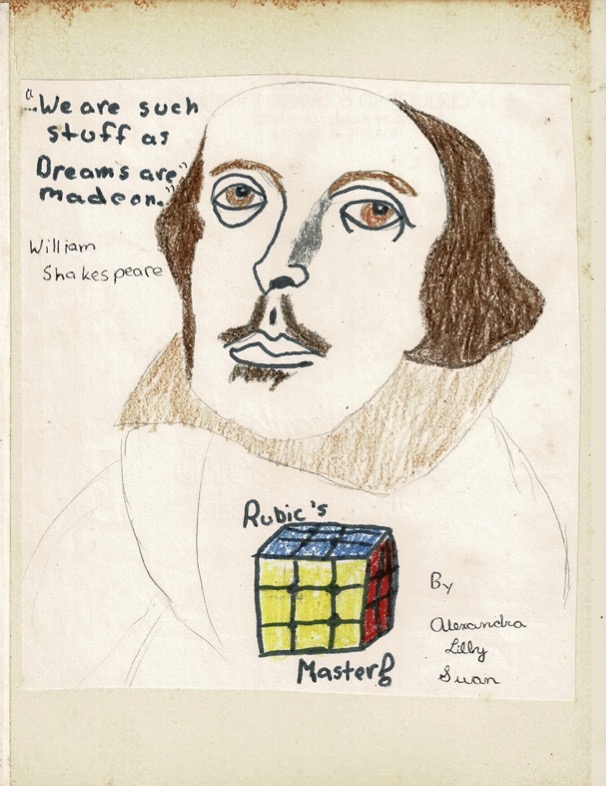 "...We are such
stuff as
Dreams are"
madeon."
William
Shakespeare
Rubic's
Master
By
Alexandra
Lilly
Swan